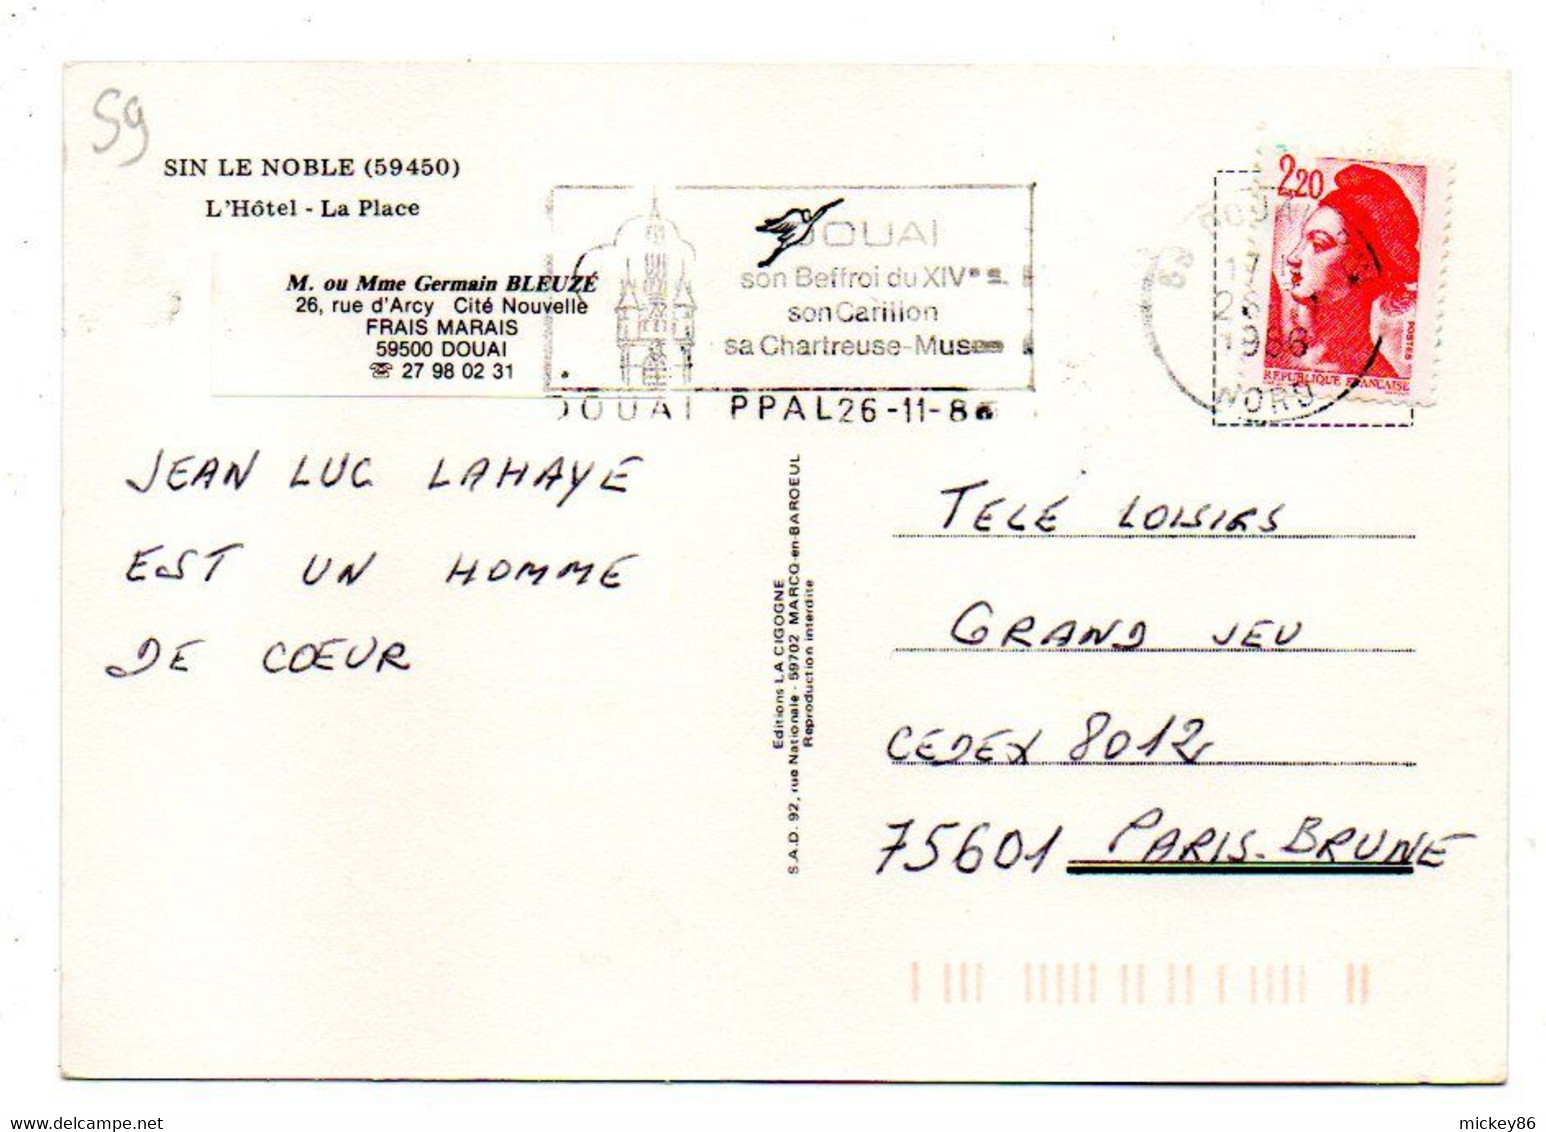 59
SIN LE NOBLE (59450)
L'Hôtel - La Place
M. ou Mme Germain BLEUZÉ
26, rue d'Arcy Cité Nouvelle
FRAIS MARAIS
59500 DOUAI
☏ 27 98 02 31
DOUAI
son Beffroi du XIVe s.
son Carillon
sa Chartreuse-Musée
DOUAI PPAL 26-11-86
59 DOUAI
17 H
26
1986
NORD
2,20
POSTES
REPUBLIQUE FRANCAISE
JEAN LUC LAHAYE
EST UN HOMME
DE CŒUR
Editions LA CIGOGNE
S.A.D. 92, rue Nationale - 59702 MARCQ-en-BAROEUL
Reproduction interdite
TELE LOISIRS
GRAND JEU
CEDEX 8012
75601 PARIS-BRUNE
mickey86